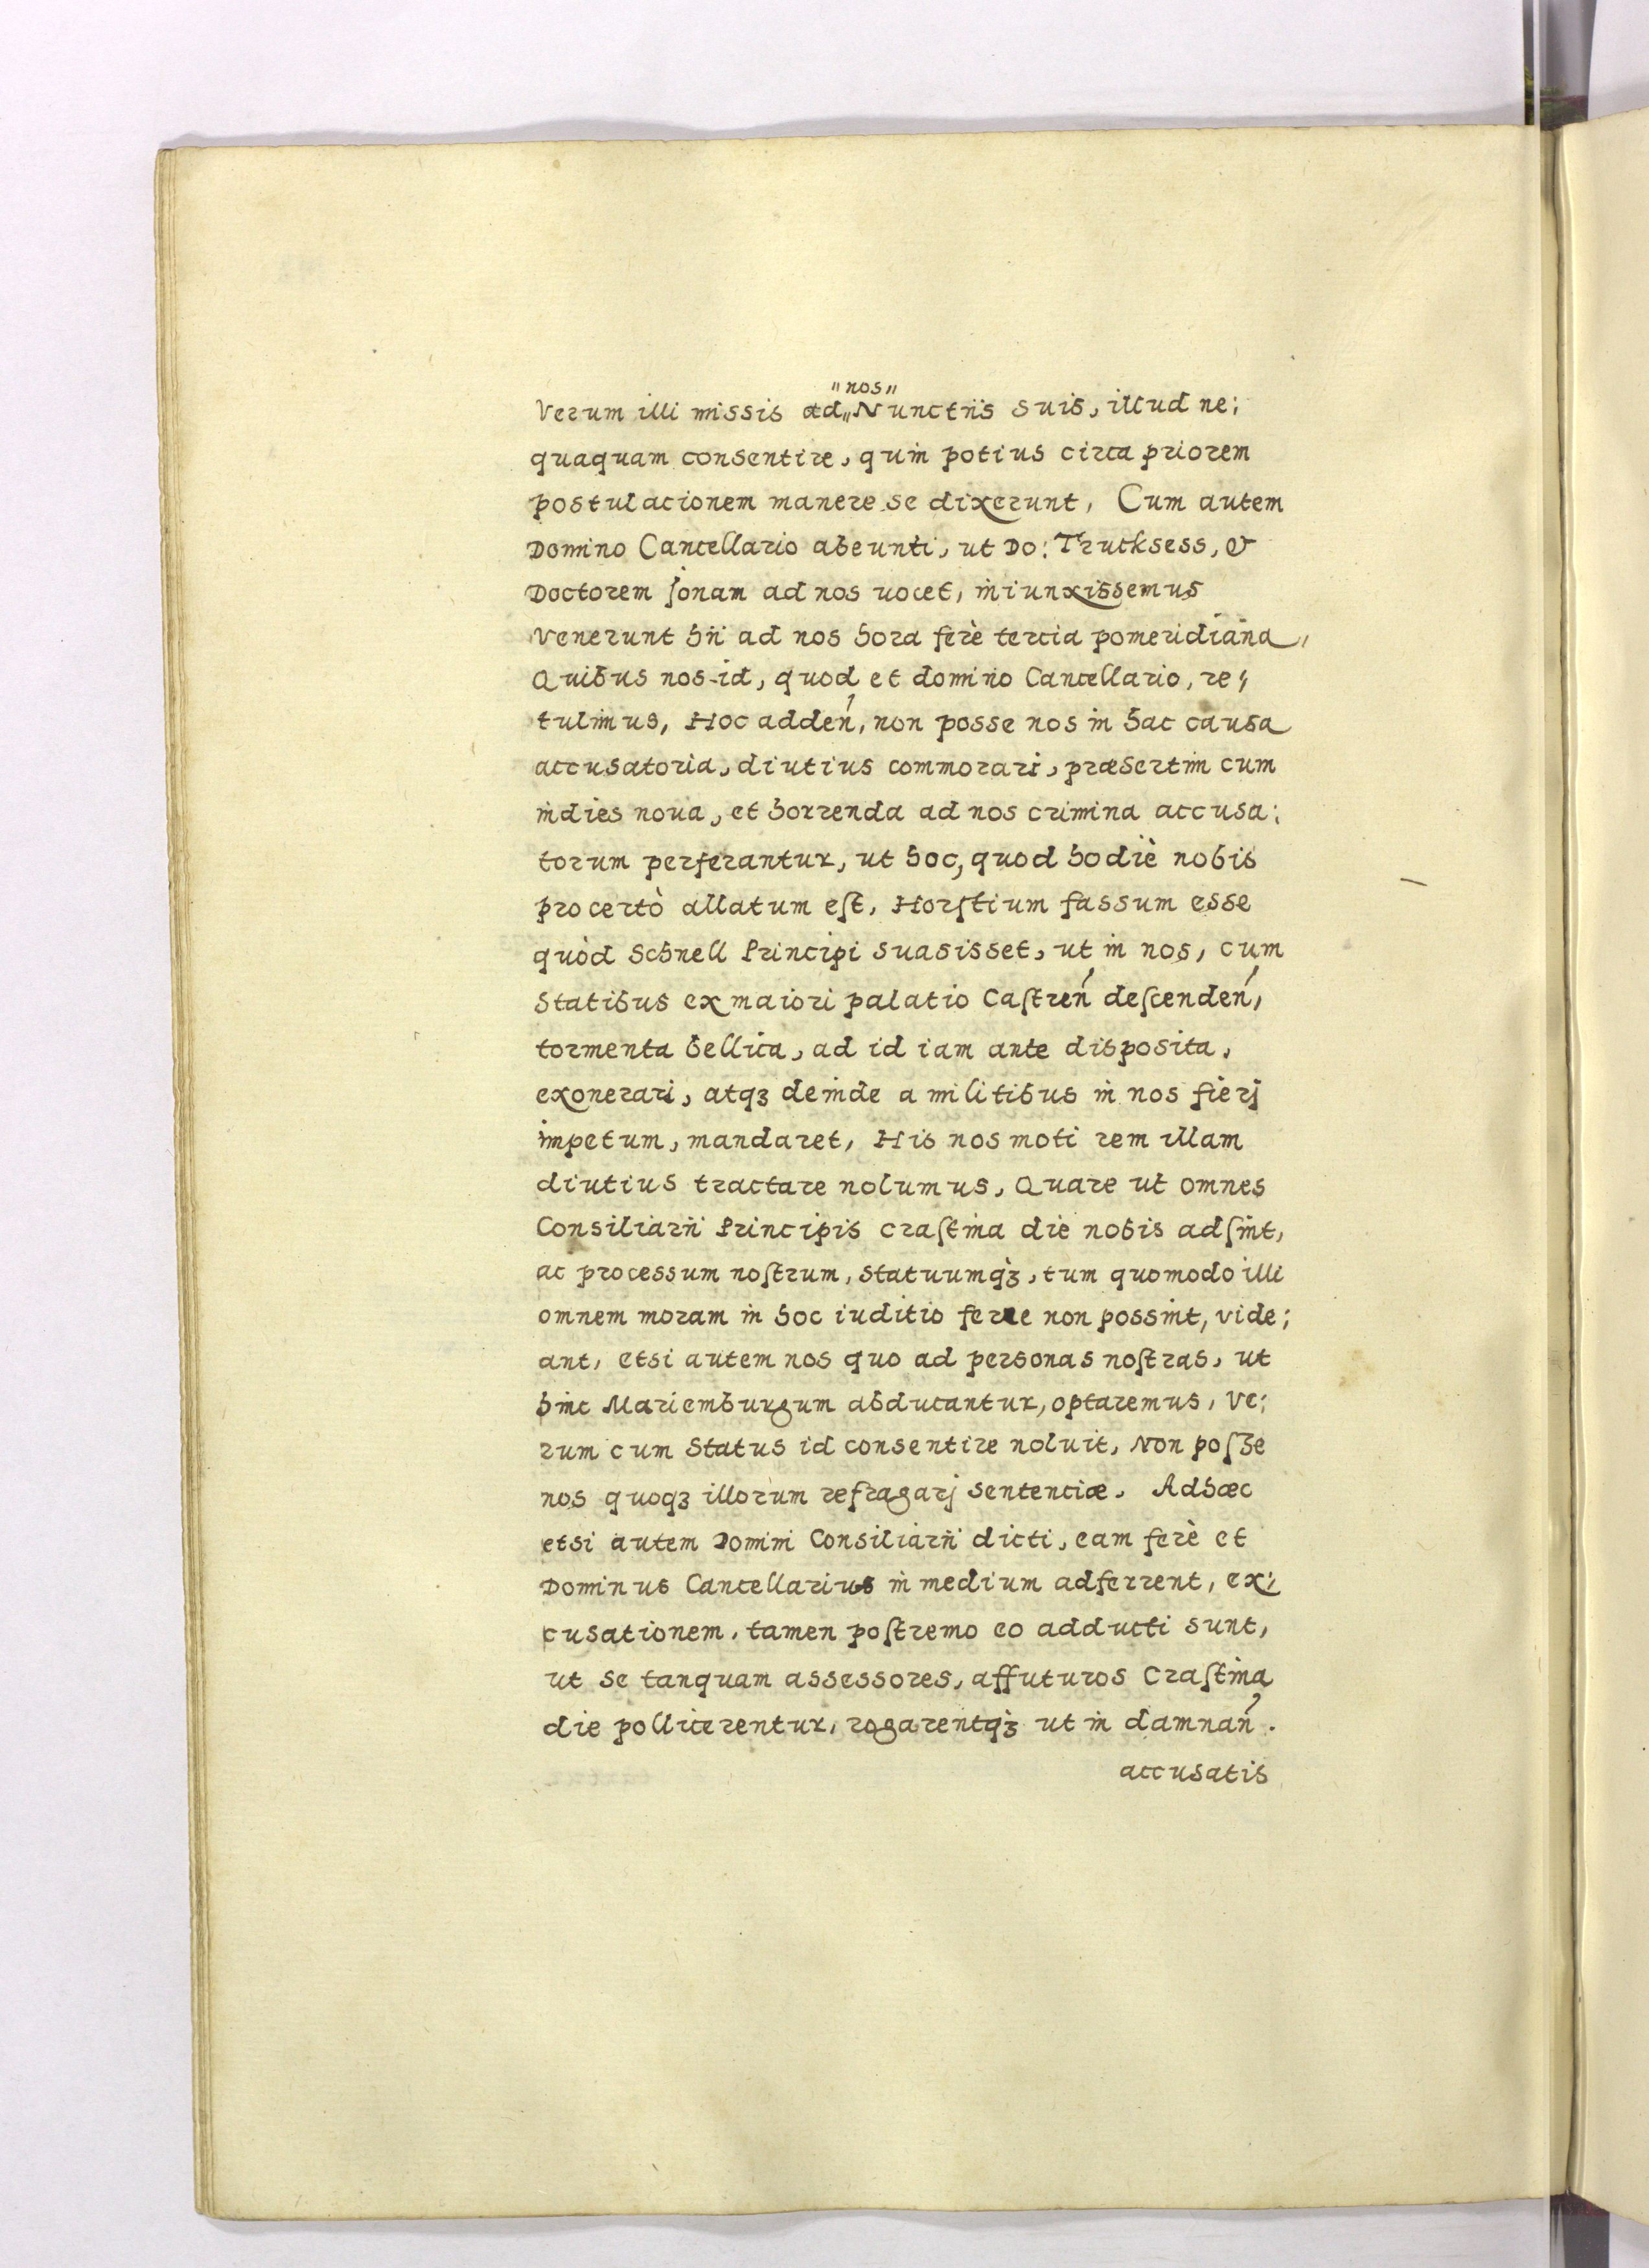 "nos"
Verum illi missis ad„Nunctiis suis, illud ne;
quaquam consentire, quin potius circa priorem
postulacionem manere se dixerunt, Cum autem
Domino Cancellario abeunti, ut Do: Trucksess, &
Doctorem Jonam ad nos vocet, iniunxissemus
Venerunt hii ad nos hora ferè tercia pomeridiana,
Quibus nos id, quod et domino Cancellario, re;
tulimus, Hoc adden̄, non posse nos in hac causa
accusatoria, diutius commorari, præsertim cum
indies noua, et horrenda ad nos crimina accusa;
torum perferantur, ut hoc, quod hodiè nobis
procertò allatum eſt, Horſtium fassum esse
quòd Schnell Principi suasisset, ut in nos, cum
Statibus ex maiori palatio Caſtren̄ deſcenden̄,
tormenta bellica, ad id iam ante disposita,
exonerari, atqȝ deinde a militibus in nos fierj
impetum, mandaret, His nos moti rem illam
diutius tractare nolumus, Quare ut omnes
Consiliarii Principis craſtina die nobis adſint,
ac processum noſtrum, statuumqȝ, tum quomodo illi
omnem moram in hoc iuditio ferre non possint, vide;
ant, etsi autem nos quo ad personas noſtras, ut
hinc Mariemburgum abducantur, optaremus, Ve;
rum cum Status id consentire noluit, Non poſse
nos quoqȝ illorum refragarj sentenciæ. Adhæc
etsi autem Domini Consiliarii dicti, eam ferè et
Dominus Cancellarius in medium adferrent, ex;
cusationem, tamen poſtremo eo adducti sunt,
ut se tanquam assessores, affuturos Craſtina
die pollicerentur, rogarentqȝ ut in damnan̄.
accusatis